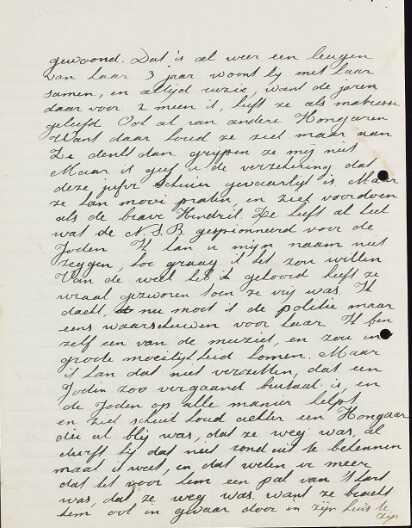 gewoond. Dat is al weer een leugen
van haar 3 jaar woont hij met haar
samen, en altijd ruzie, want de jaren
daar voor 2 meen ik, heeft ze als
geleefd Ook al van andere Hongaren
Want daar houd ze ziet maar aan
Ze denkt dan grijpen ze mij niet
Maar ik geef u de verzekering dat
deze jufvr gevaarlijk is Maar
ze kan mooi praten, en ziet voordoen
als de brave Hendrik. Ze heeft al het
wat de N.S.B. gespionneerd voor de
Joden Ik kan u mijn naam niet
zeggen, hoe graag ik het zou willen
Van de week het ik geloovd heeft ze
wraak gezworen toen ze vrij was Ik
dacht, nu moet ik de politie maar
eens waarschuwen voor haar Ik ben
zelf een van de muziek, en zou in
groote moeilijkheid komen. Maar
ik kan dat niet verzetten, dat een
Jodin zoo vergaand brutaal is, en
de Joden op alle manier helpt
en ziet schuil houd achter een Hongaar
die al blij was, dat ze weg was, al
durft hij dat niet rond uit te bekennen
maar ik weet, en dat weten er meer
dat het voor hem een pak van 't hart
was, dat ze weg was want ze bracht
hem ook in gevaar door in zijn huis te